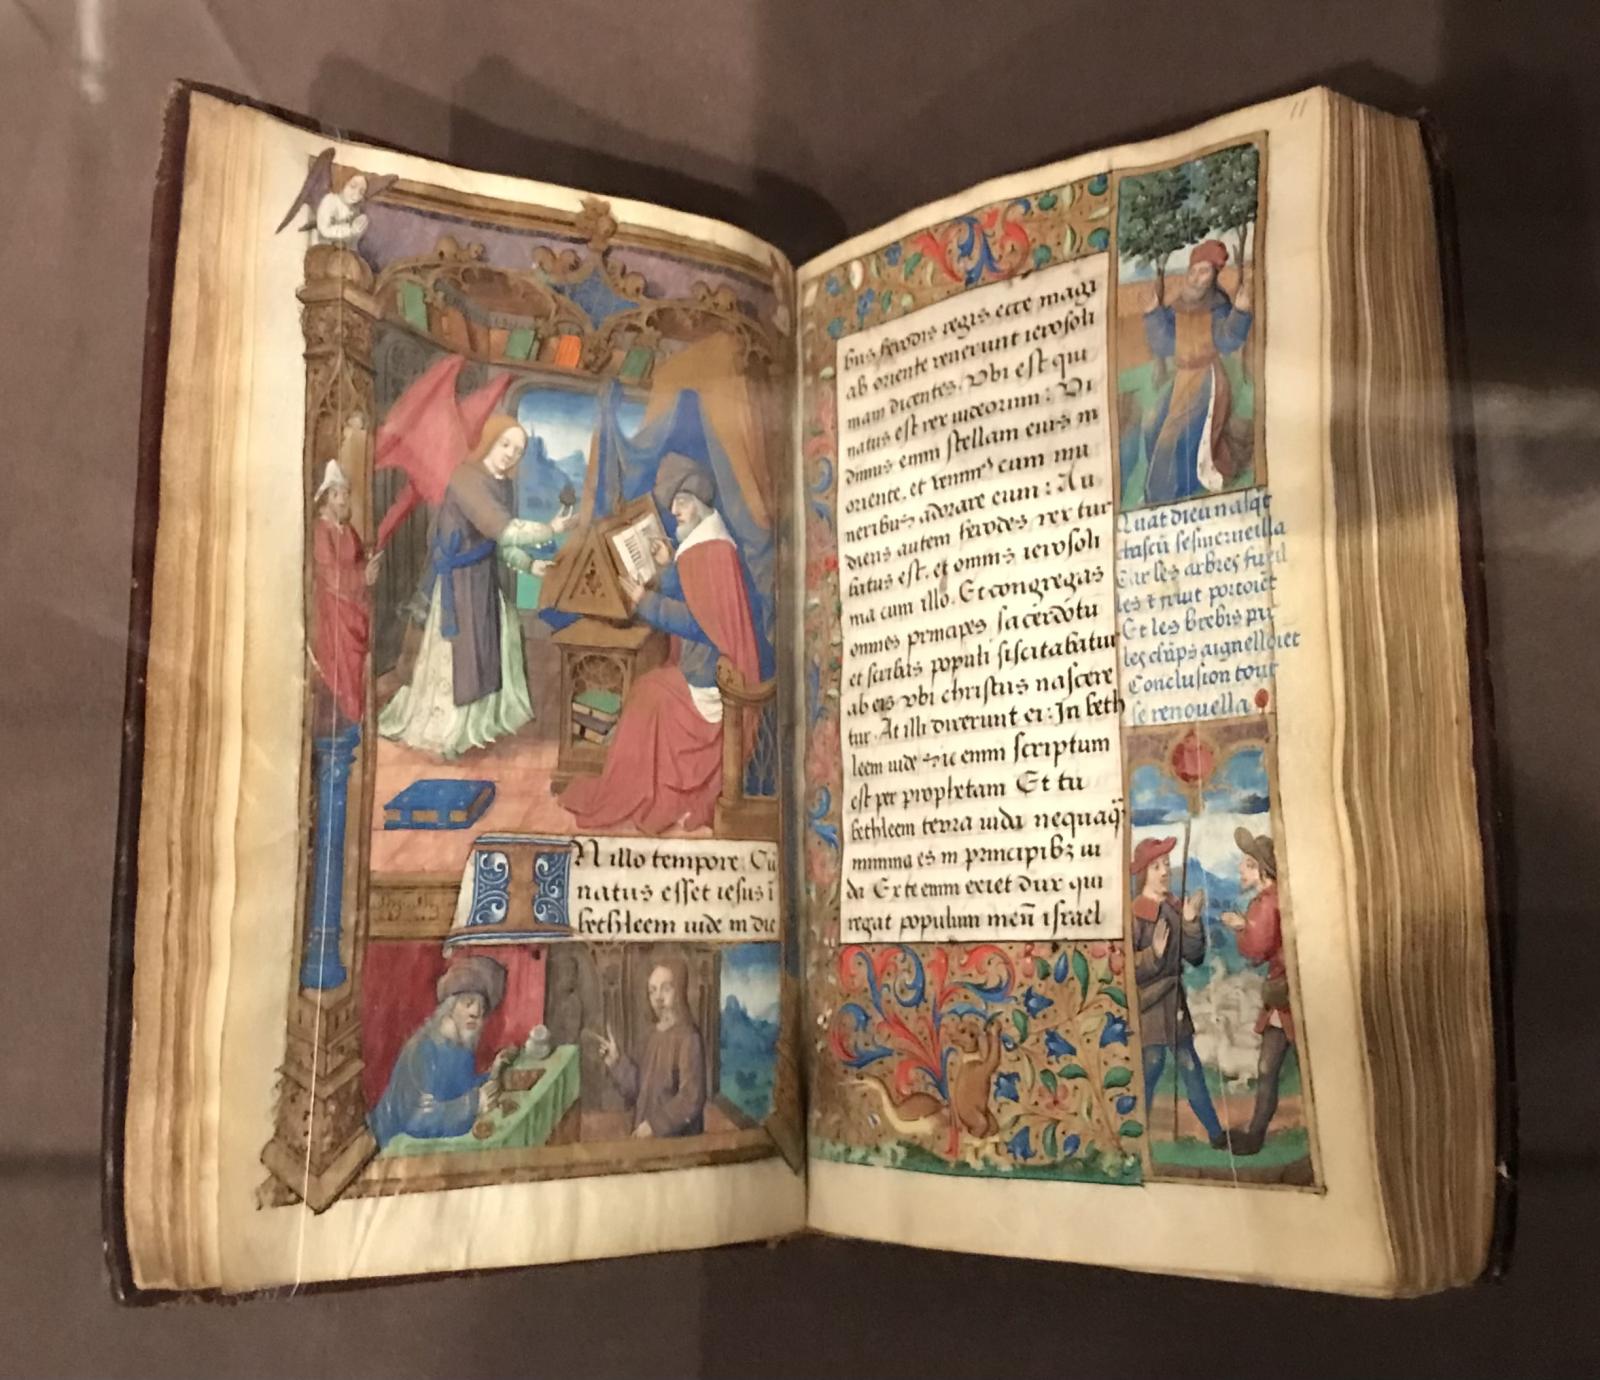 N illo tempore: Cũ
natus esset iesus ĩ
bethleem iude in die
11
bus herodis regis ecce magi
ab oriente venerunt ierosoli
mam dicentes. Vbi est qui
natus est rex iudeorum: Vi
dimus enim stellam eius in
oriente. et venim⁹ cum mu
neribus adorare eum: Au
diens autem herodes rex tur
batus est. et omnis ierosoli
ma cum illo. Et congregas
omnes principes sacerdotũ
et scribas populi siscitabatur
ab eis vbi christus nascere
tur. At illi dixerunt ei: In beth
leem iude sic enim scriptum
est per prophetam Et tu
bethleem terra iuda nequaq̃
minima es in principibꝫ iu
da Ex te enim exiet dux qui
regat populum meũ israel
Quãt dieu nasq̃t
chascũ sesmerueilla
Car les arbres fueil
les t fruit portoiẽt
Et les brebis p
les chãps aignelloiẽt
Conclusion tout
se renouella